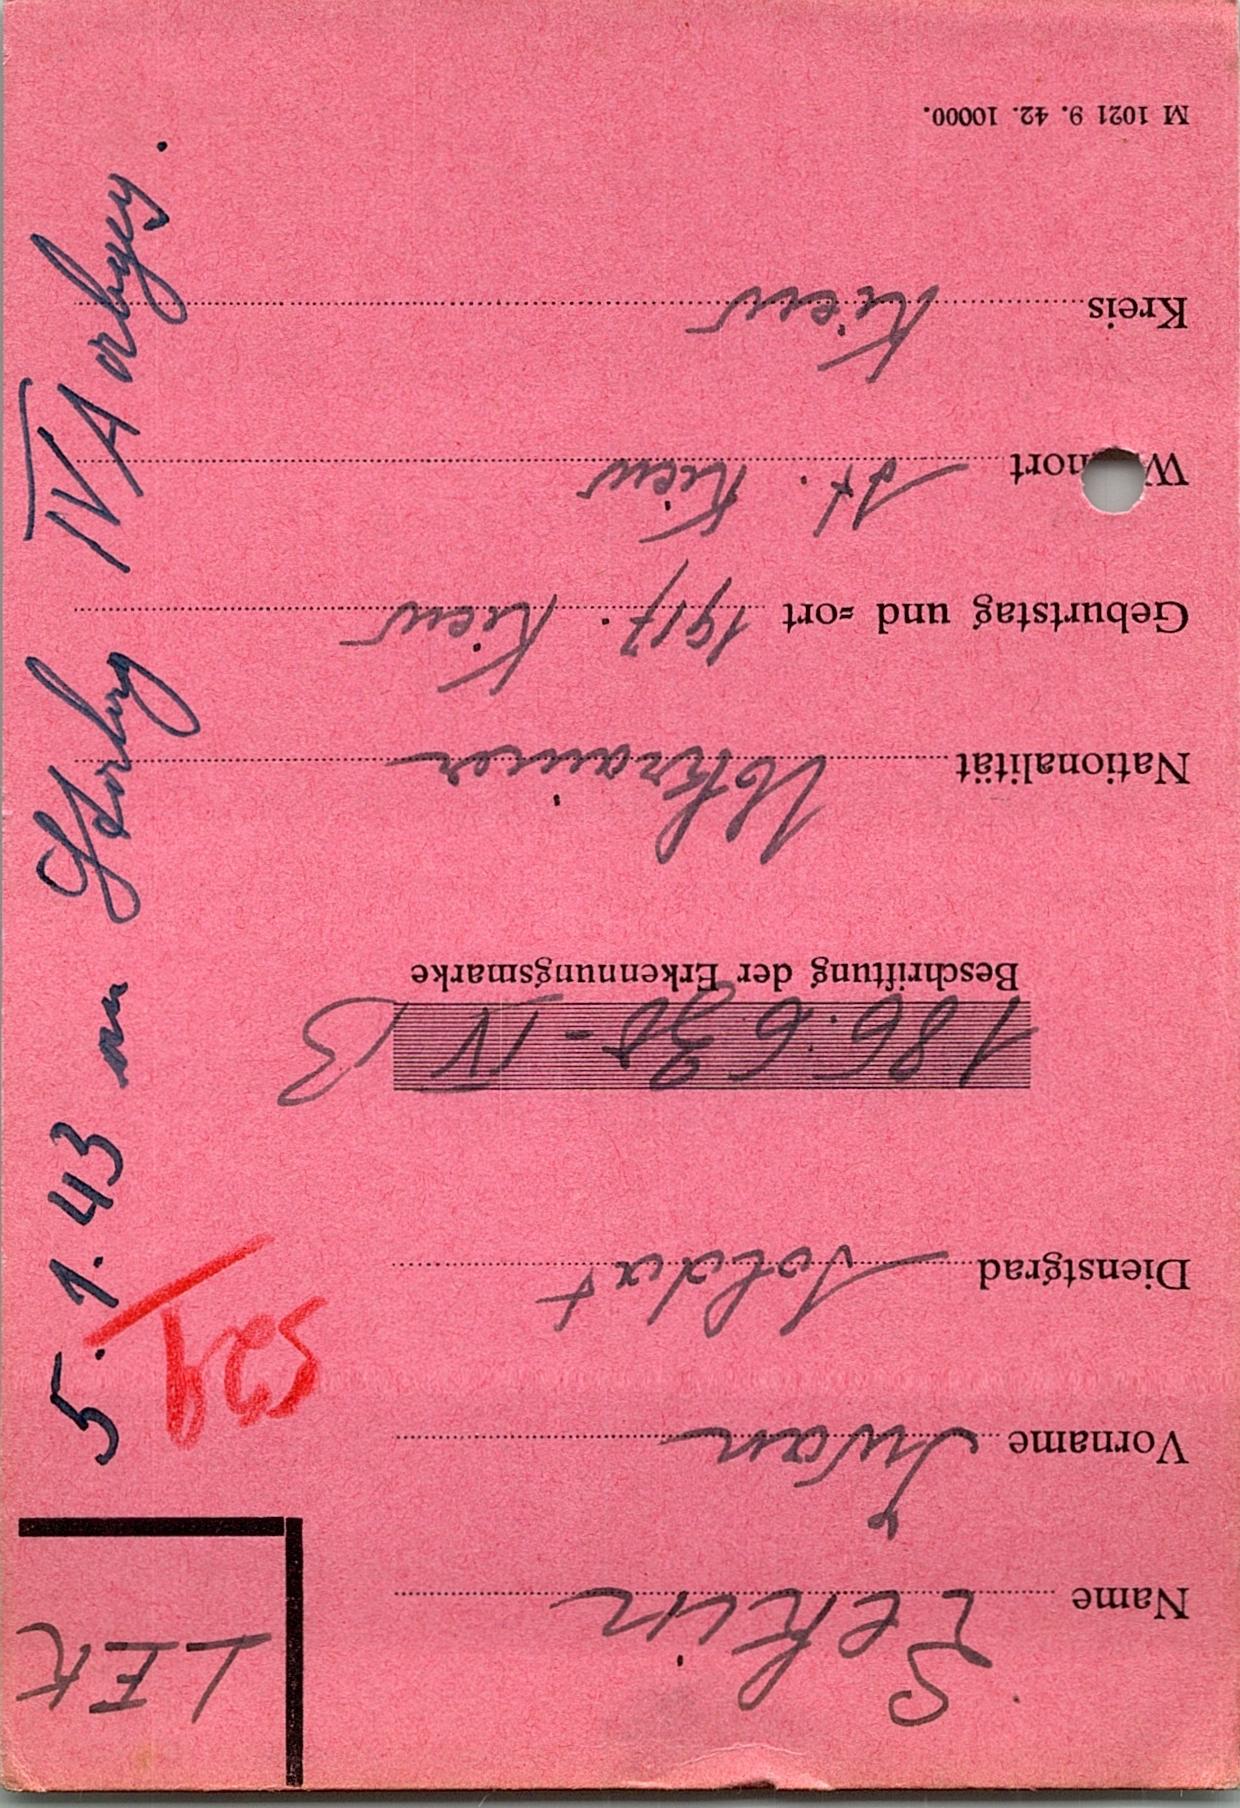 LEK
Name Lekin
Vorname Iwan
529
Dienstgrad Soldat
186.630 - IV B
Beschriftung der Erkennungsmarke
Nationalität Ukrainer
Geburtstag und -ort 1917. Kiew
Wohnort St. Kiew
Kreis Kiew
M 1021 9. 42. 10000.
5.1.43 an IV A